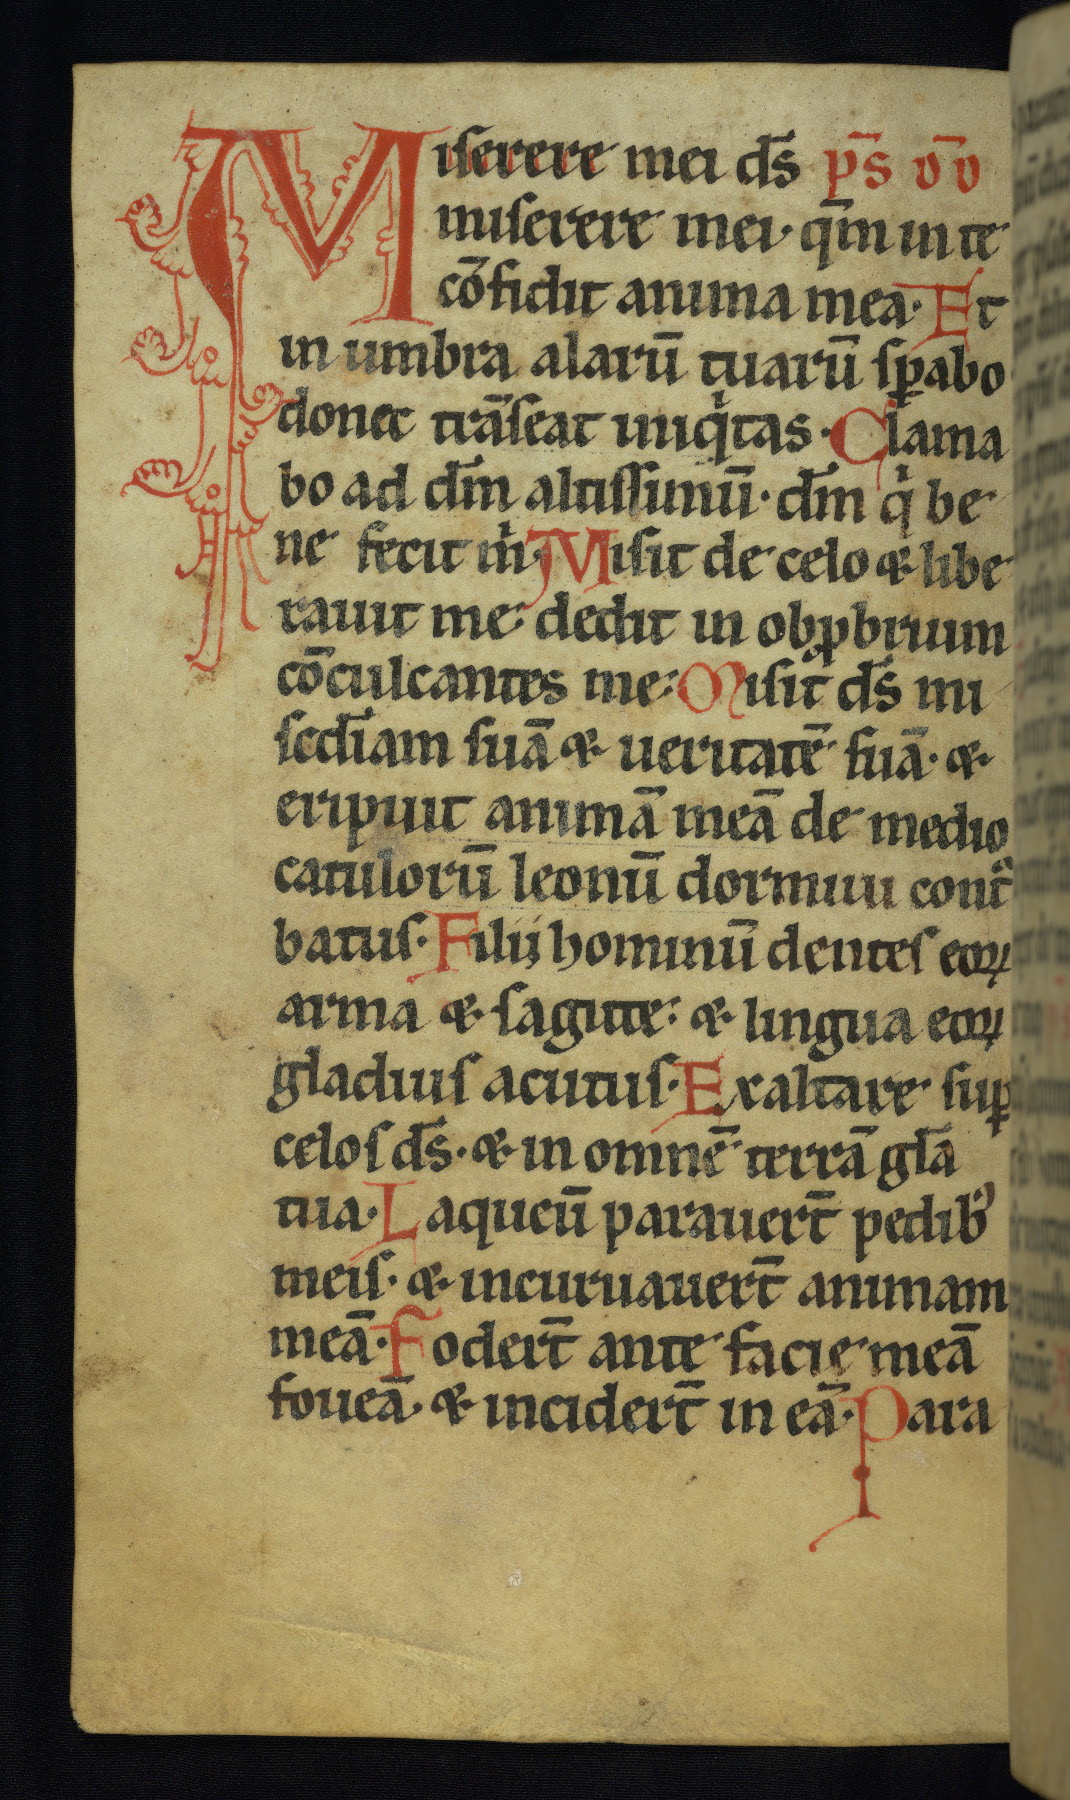 Miserere mei ds̄ ps̄ dd̄
miserere mei· qm̄ in te
cōfidit anima mea· Et
in umbra alarū tuarū sꝑabo
donec trāseat iniqͥtas· Clama
bo ad dm̄ altissimū· dm̄ qͥ be
ne fecit mͥ· Misit de celo & libe
rauit me· dedit in obꝓbrium
cōculcantes me· Misit̄ ds̄ mi
sc̄diam suā & ueritatē suā· &
eripuit animā meā de medio
catulorū leonū dormiui cont̾
batus· Filii hominū dentes eoꝝ
arma & sagitte· & lingua eoꝝ
gladius acutus· Exaltare suꝑ
celos ds̄· & in omnē terrā glā
tua· Laqueū parauert̄ pedib᾽
meis· & incuruauert̄ animam
meā· Fodert̄ ante facie meā
foueā· & incidert̄ in eā· Para